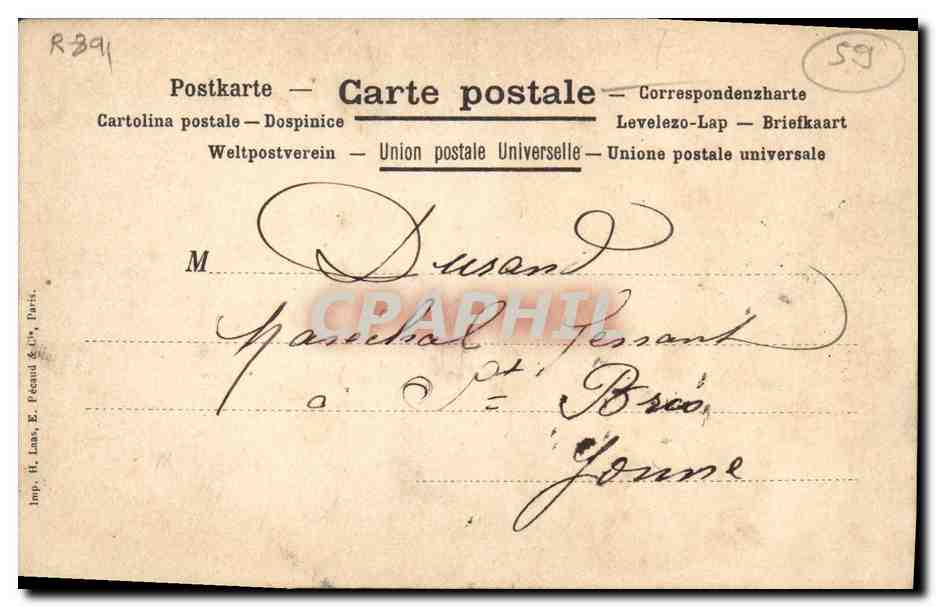 R-391
59
Postkarte — Carte postale — Correspondenzharte
Cartolina postale — Dospinice Levelezo-Lap — Briefkaart
Weltpostverein — Union postale Universelle — Unione postale universale
M Durand
CPAPHIL
Marechal ferrant
à St Bris
Yonne
Imp. H. Laas, E. Pécaud & Cie, Paris.